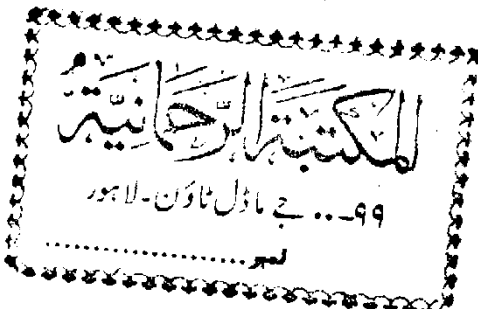 المكتبة الرحمانية
۹۹-۰۰ جے ماڈل ٹاؤن - لاہور
نمبر ......................